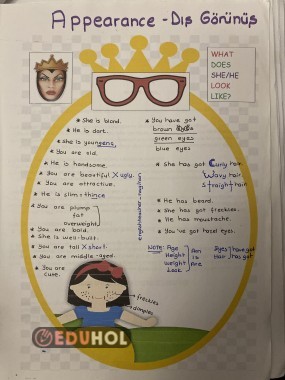 Appearance - Dış Görünüş
WHAT
DOES
SHE/HE
LOOK
LIKE?
* She is bland.
* He is dart.
* She is young
* You are old.
* He is handsome.
* You are beatiful X ugly.
* You are attractive.
* He is slim ≠ thin
* You are plump
fat
overweight
* You are bald.
* She is well-built.
* You are tall X short.
* You are middle-aged.
* You are
cute.
* You have got
brown eyes
green eyes
blue eyes
* She has got Curly hair
Wavy hair
Straight hair
* He has beard.
* She has got freckles.
* He has moustache.
* You've got hazel eyes.
NOTE: Age
Height
Weight
Look
Am
is
Are
Eyes
Hair
have got
has got
freckles
dimples
EDUHOL